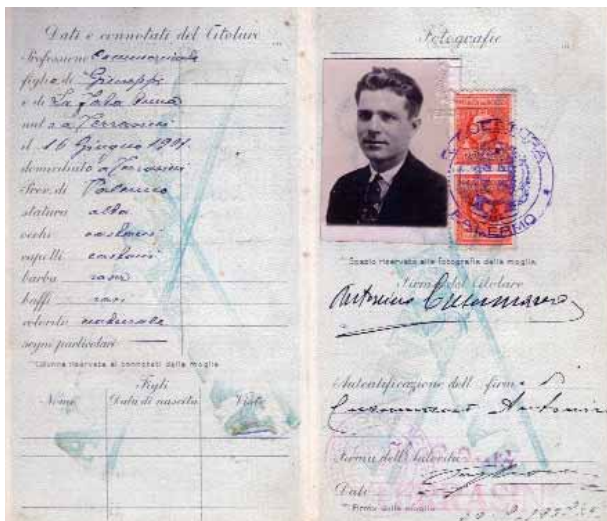 Dati e connotati del Titolare
Professione Commerciale
figlio di Giuseppe
e di La Fata Anna
nato a Terrasini
il 16 Giugno 1901
domiciliato a Terrasini
Prov. di Palermo
statura alta
occhi castani
capelli castani
barba rasa
baffi rasi
colorito naturale
segni particolari —
Colonna riservata ai connotati della moglie
Figli
Nome Data di nascita Visto
Fotografie
PALERMO
Spazio riservato alla fotografia della moglie
Firma del Titolare
Antonino
Autentificazione della firma di
Antonino
Firma dell'Autorità
Data
Firma della moglie